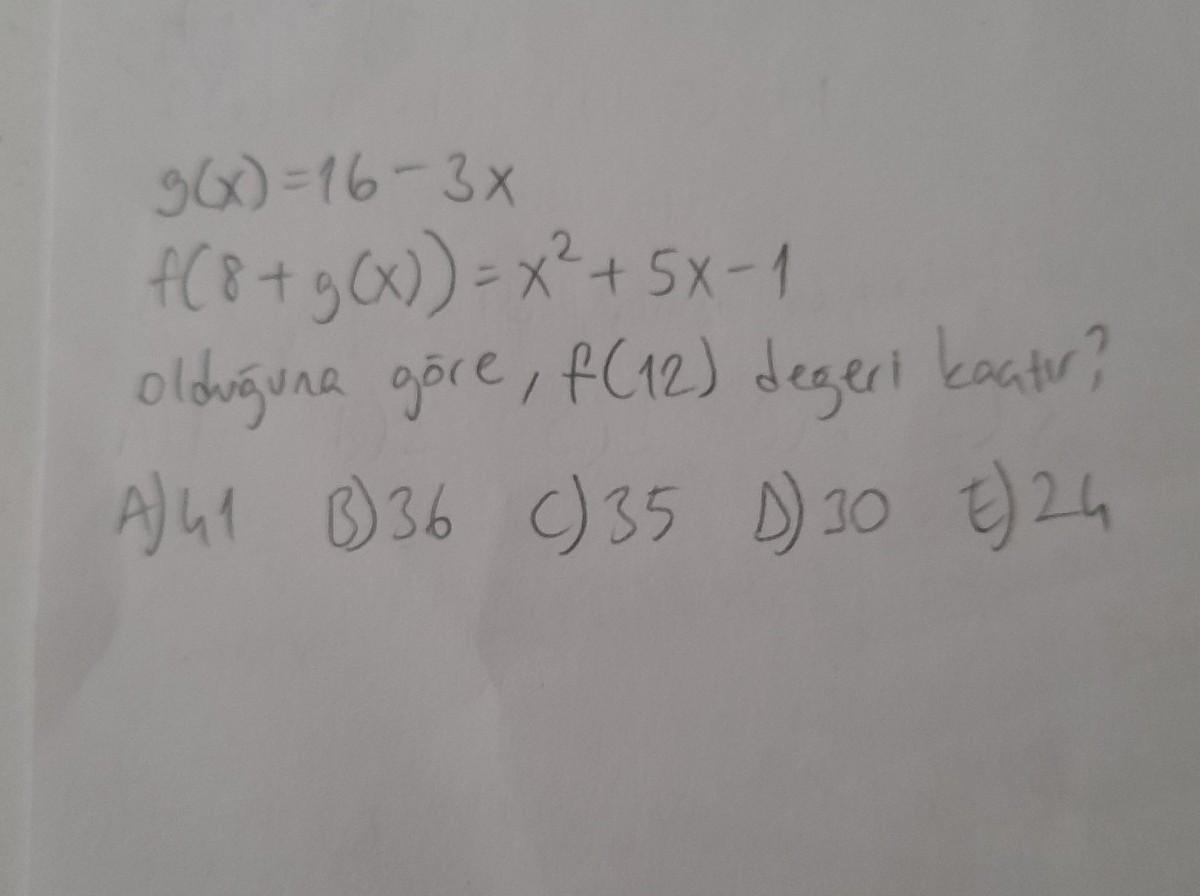 g(x)=16-3x
f(8+g(x))=x²+5x-1
olduğuna göre, f(12) degeri kaçtır?
A)41 B)36 C)35 D)30 E)24